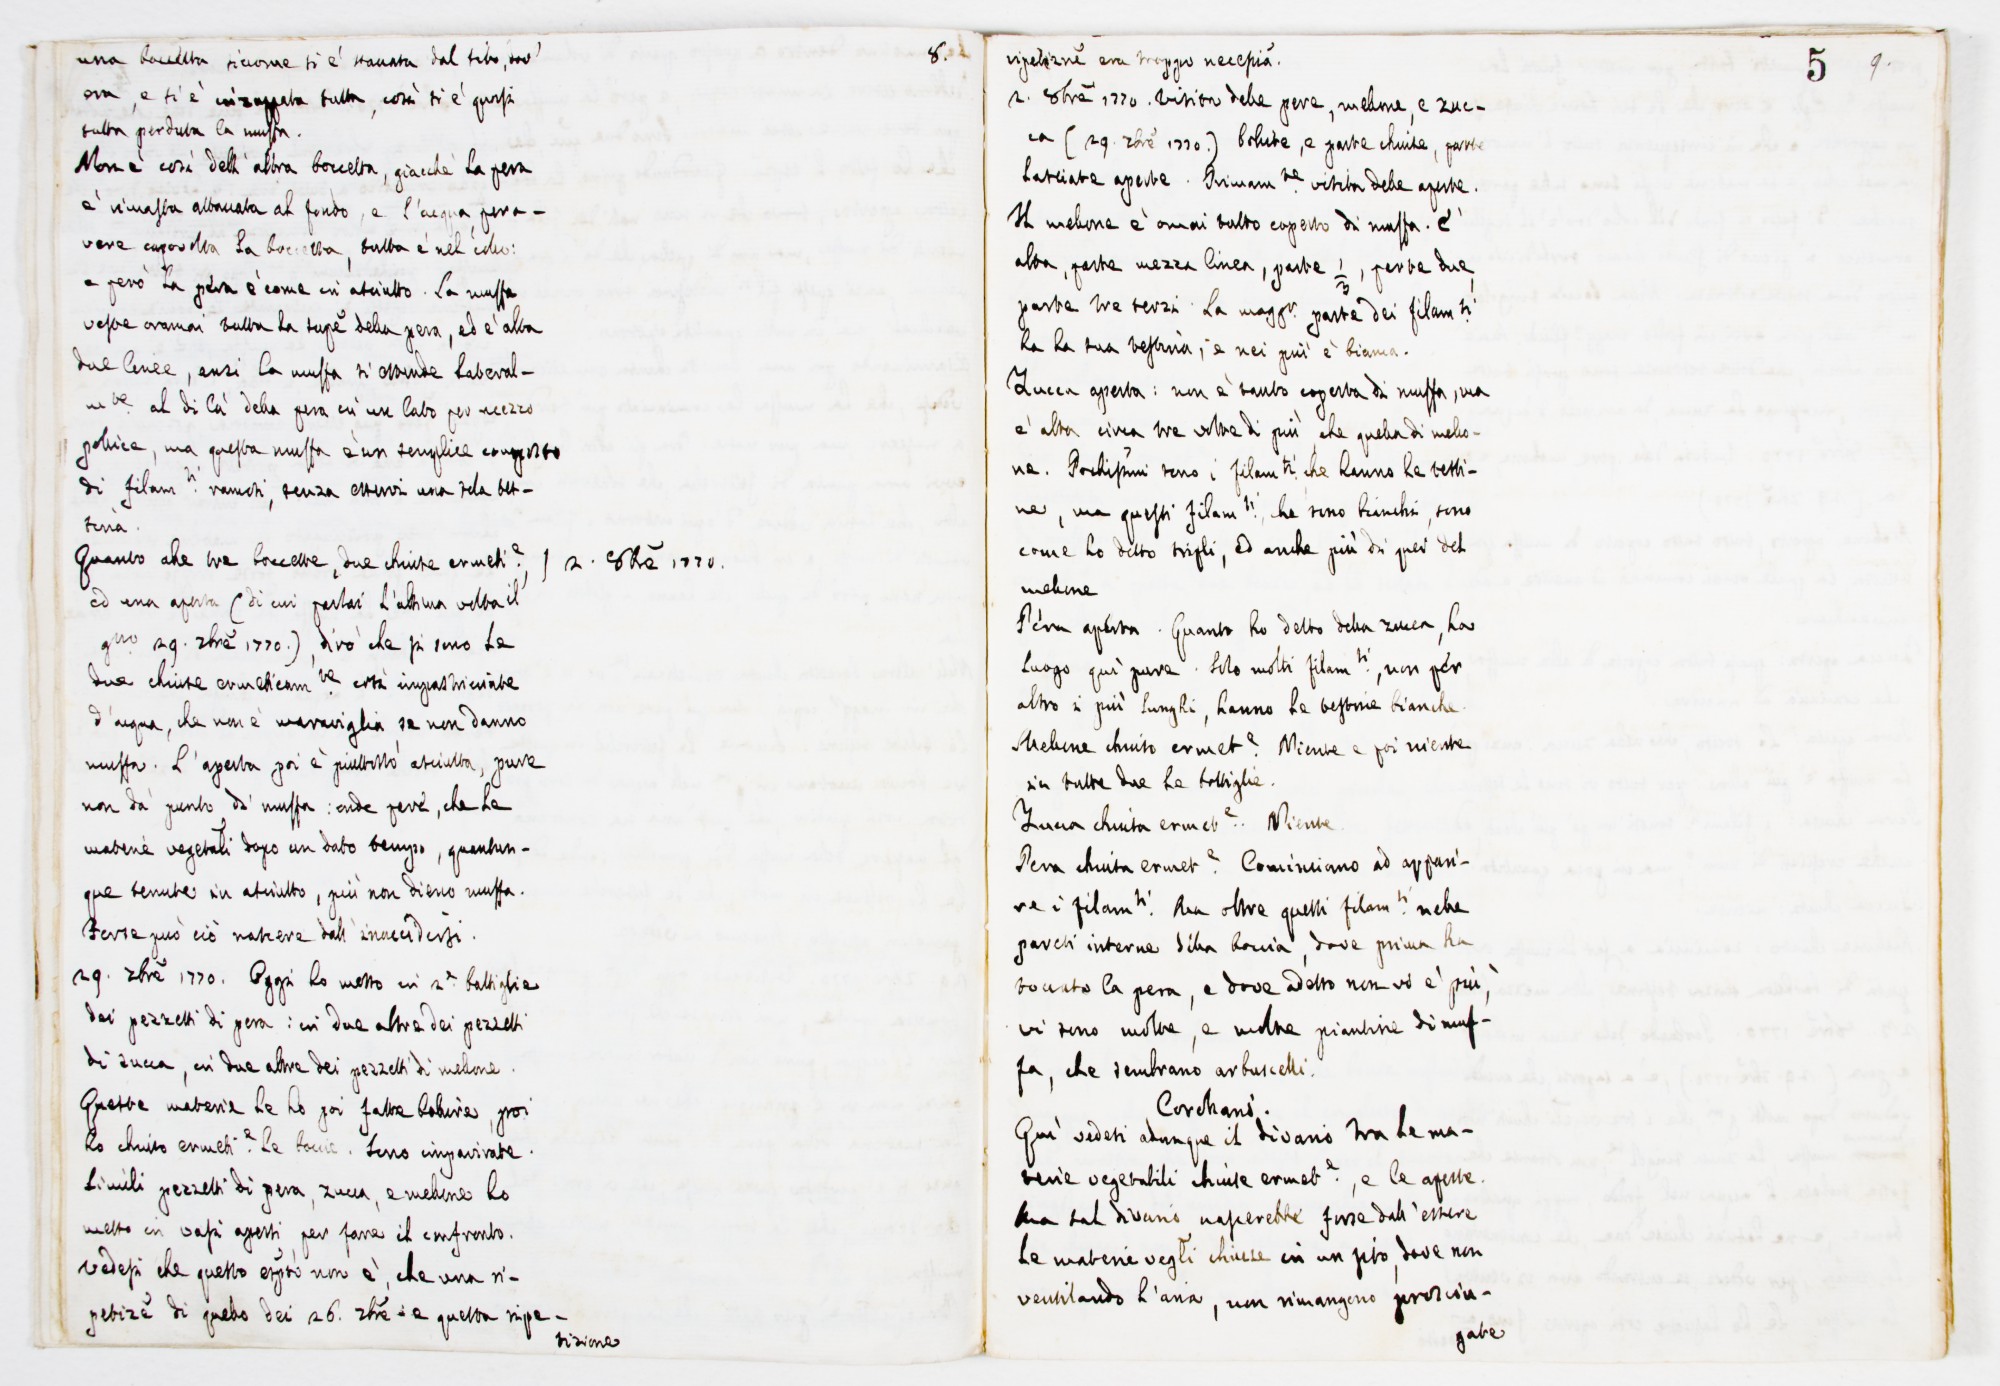 8.
una boccetta siccome si è staccata dal sito, dov'
era, e si è inzuppata tutta, così si è quasi
tutta perduta la muffa.
Non è così dell' altra boccetta, giacchè la pera
è rimasta attaccata al fondo, e l'acqua, per a-
vere capovolta la boccetta, tutta è nel collo:
e però la pera è come in asciutto. La muffa
veste oramai tutta la supe della pera, ed è alta
due linee, anzi la muffa si estende lateral-
mte al di là della pera in un lato per mezzo
pollice, ma questa muffa è un semplice composto
di filamti ramosi, senza esservi una sola tes-
teria.
Quanto alle tre boccette, due chiuse ermetie, } 2. 8bre 1770.
ed una aperta (di cui parlai l'ultima volta il
gno 29. 7bre 1770.), dirò che si sono le
due chiuse ermeticamte così impastricciate
d'acqua, che non è maraviglia se non danno
muffa. L'aperta poi è piuttosto asciutta, pure
non dà punto di muffa: onde pare, che le
materie vegetali dopo un dato tempo, quantun-
que tenute in asciutto, più non dieno muffa.
Forse può ciò nascere dall'
29. 7bre 1770. Oggi ho messo in 2e bottiglie
dei pezzetti di pera: in due altre dei pezzetti
di zucca, in due altre dei pezzetti di melone.
Queste materie le ho poi fatte bollire, poi
ho chiuso ermetie le boccie. Sono impavirate.
Simili pezzetti di pera, zucca, e melone ho
messo in vasi aperti per fare il confronto.
Vedesi che questo esptō non è, che una ri-
petizē di quello dei 26. 7bre e questa ripe-
tizione
5 9.
ripetiznē era troppo necessia.
2. 8bre 1770. Visita delle pere, melone, e zuc-
ca (29. 7bre 1770.) bollite, e parte chiuse, parte
lasciate aperte. Primamte visita delle aperte.
Il melone è omai tutto coperto di muffa. È
alta, parte mezza linea, parte 1/3, parte due,
parte tre terzi. La maggr parte dei filamti
ha la sua testina, e nei più è bianca.
Zucca aperta: non è tanto coperta di muffa, ma
è alta circa tre volte di più, che quella di melo-
ne. Pochissimi sono i filamti che hanno le testi-
ne, ma questi filamti, che sono bianchi, sono
come ho detto tripli, ed anche più di quei del
melone
Pera aperta. Quanto ho detto della zucca, ha
luogo quì pure. Solo molti filamti, non per
altro i più lunghi, hanno le testine bianche.
Melone chiuso ermete. Niente e poi niente
in tutte due le bottiglie.
Zucca chiusa ermete. Niente
Pera chiusa ermete. Cominciano ad appari-
re i filamti. Ma oltre questi filamti nelle
pareti interne della boccia, dove prima ha
toccato la pera, e dove adesso non vi è più,
vi sono molte, e molte piantine di muf-
fa, che sembrano arbuscelli.
Corollarj.
Quì vedesi adunque il divario tra le ma-
terie vegetabili chiuse ermete, e le aperte.
Ma tal divario nascerebbe forse dall'essere
le materie vegtli chiuse in un sito, dove non
ventilando l'aria, non rimangono prosciu-
gate